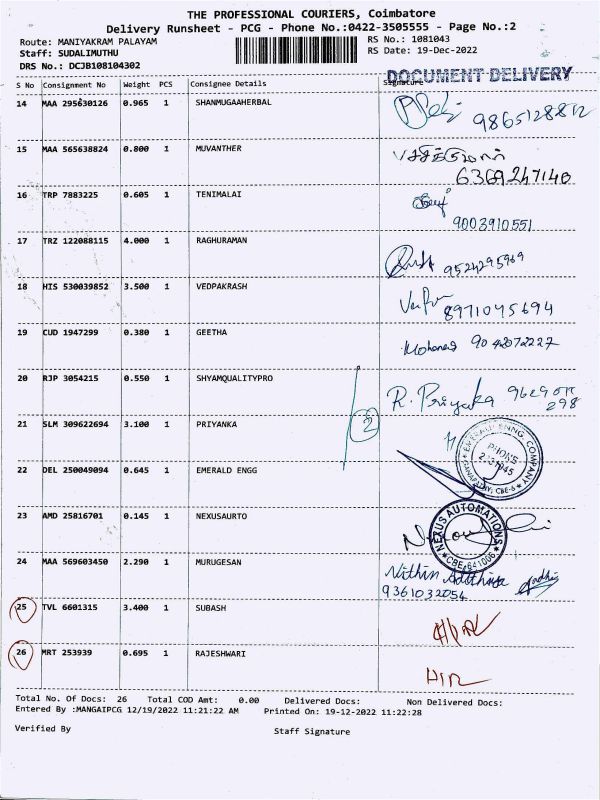 THE PROFESSIONAL COURIERS, Coimbatore
Delivery Runsheet - PCG - Phone No.:0422-3505555 - Page No.:2
Route: MANIYAKRAM PALAYAM RS No.: 1081043
Staff: SUDALIMUTHU RS Date: 19-Dec-2022
DRS No.: DCJB108104302
DOCUMENT DELIVERY
S No Consignment No Weight PCS Consignee Details Signature
14 MAA 295630126 0.965 1 SHANMUGAAHERBAL 9865128812
15 MAA 565638824 0.800 1 MUVANTHER
6369247140
16 TRP 7883225 0.605 1 TENIMALAI
9003910551
17 TRZ 122088115 4.000 1 RAGHURAMAN
9524295969
18 HIS 530039852 3.500 1 VEDPAKRASH
8971045694
19 CUD 1947299 0.380 1 GEETHA
9042072227
20 RJP 3054215 0.550 1 SHYAMQUALITYPRO
R. Priyaka
298
21 SLM 309622694 3.100 1 PRIYANKA 2
EMERALD ENNG. COMPANY
PHONE
GANAPATHY, CBE-6
22 DEL 250049094 0.645 1 EMERALD ENGG
23 AMD 25816701 0.145 1 NEXUSAURTO
NEXUS AUTOMATIONS
CBE-641006
24 MAA 569603450 2.290 1 MURUGESAN
Nithin
9361032054
25 TVL 6601315 3.400 1 SUBASH
26 MRT 253939 0.695 1 RAJESHWARI
Total No. Of Docs: 26 Total COD Amt: 0.00 Delivered Docs: Non Delivered Docs:
Entered By :MANGAIPCG 12/19/2022 11:21:22 AM Printed On: 19-12-2022 11:22:28
Verified By Staff Signature